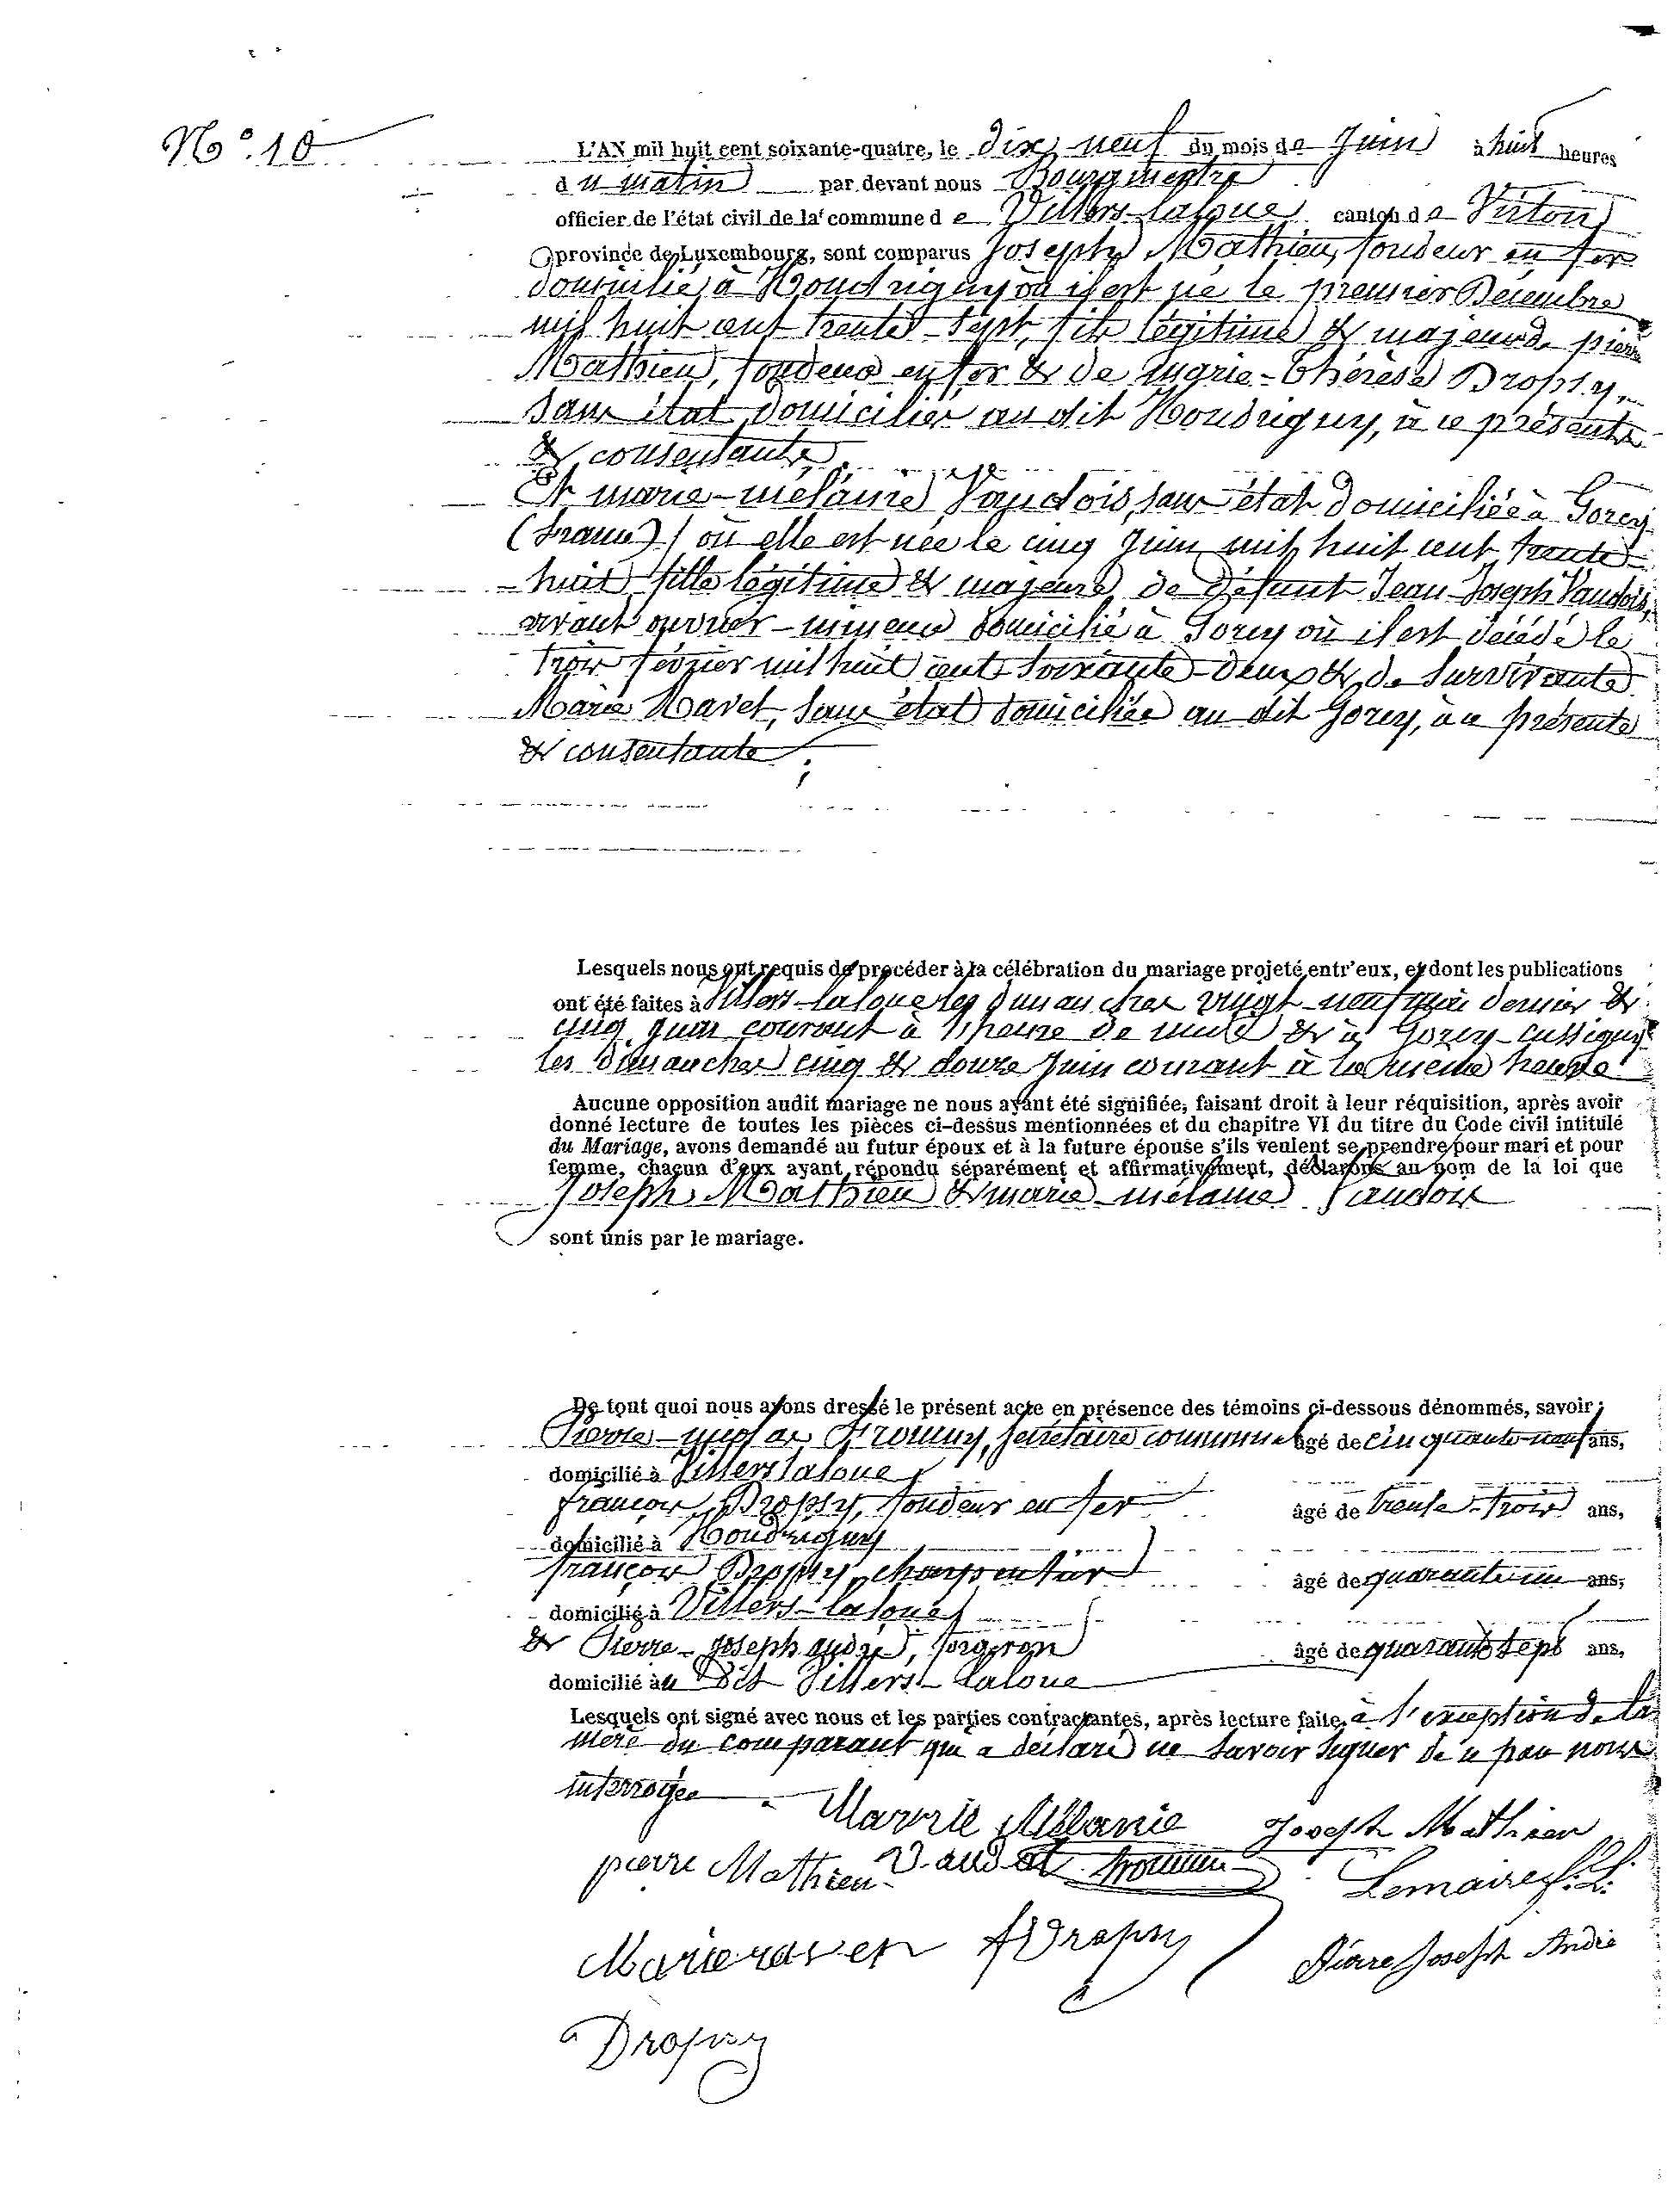 N°. 10
L'AN mil huit cent soixante-quatre, le dix neuf du mois de Juin à huit heures
du matin par devant nous Bourgmestre
officier de l'état civil de la commune de Villers-laLoue canton de Virton
province de Luxembourg, sont comparus Joseph Mathieu, fondeur en fer
domicilié à Houdrigny où il est né le premier Décembre
mil huit cent trente-sept, fils légitime & majeur de pierre
Mathieu, fondeur en fer & de marie-Thérèse Dropsy,
sans état domiciliés au dit Houdrigny, à ce présents
& consentants,
Et marie-mélanie Vaudois, sans état domiciliée à Gorcy
(france) où elle est née le cinq Juin mil huit cent trente-
-huit fille légitime & majeure de défunt Jean-Joseph Vaudois,
vivant ouvrier-mineur domicilié à Gorcy où il est décédé le
trois février mil huit cent soixante-deux & de survivante
Marie Ravet, sans état domiciliée au dit Gorcy, à ce présente
& consentante;
Lesquels nous ont requis de procéder à la célébration du mariage projeté entr'eux, et dont les publications
ont été faites à Villers-laloue les dimanches vingt-neuf mai dernier &
cinq Juin courant à l'heure de midi & à Gorcy-Cussigny
les dimanches cinq & douze Juin courant à la même heure
Aucune opposition audit mariage ne nous ayant été signifiée, faisant droit à leur réquisition, après avoir
donné lecture de toutes les pièces ci-dessus mentionnées et du chapitre VI du titre du Code civil intitulé
du Mariage, avons demandé au futur époux et à la future épouse s'ils veulent se prendre pour mari et pour
femme, chacun d'eux ayant répondu séparément et affirmativement, déclarons au nom de la loi que
Joseph Mathieu & marie-mélanie Vaudois
sont unis par le mariage.
De tout quoi nous avons dressé le présent acte en présence des témoins ci-dessous dénommés, savoir:
Pierre-nicolas, secrétaire communal âgé de cinquante-neuf ans,
domicilié à Villers laloue
françois Dropsy, fondeur en fer âgé de trente-trois ans,
domicilié à Houdrigny
françois Dropsy, charpentier âgé de quarante un ans,
domicilié à Villers-laloue
& Pierre-Joseph andré, forgeron âgé de quarante sept ans,
domicilié au dit Villers-laloue
Lesquels ont signé avec nous et les parties contractantes, après lecture faite, à l'exception de la
mère du comparant qui a déclaré ne savoir signer de ce par nous
interrogée.
Marrie Mélanie Joseph Mathieu
pierre Mathieu Vaudoit Lemaire f. L.
Marie raven f Dropsy Pierre Joseph André
Dropsy